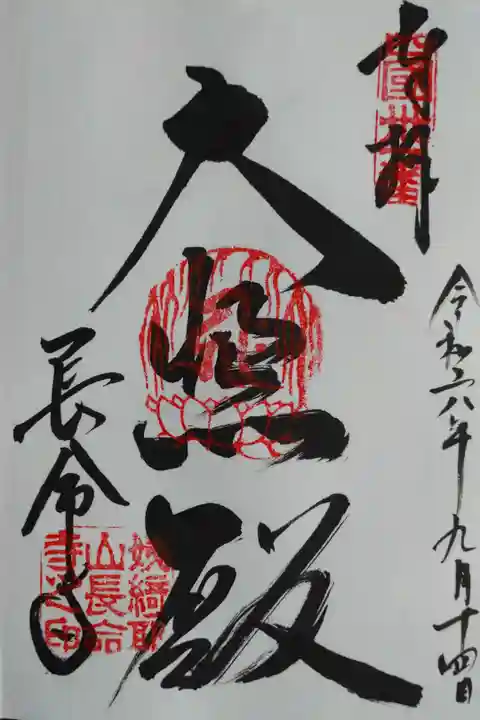 奉拝
西國卅一番
令和六年九月十四日
大悲殿
長命寺
姨綺耶
山長命
寺之印